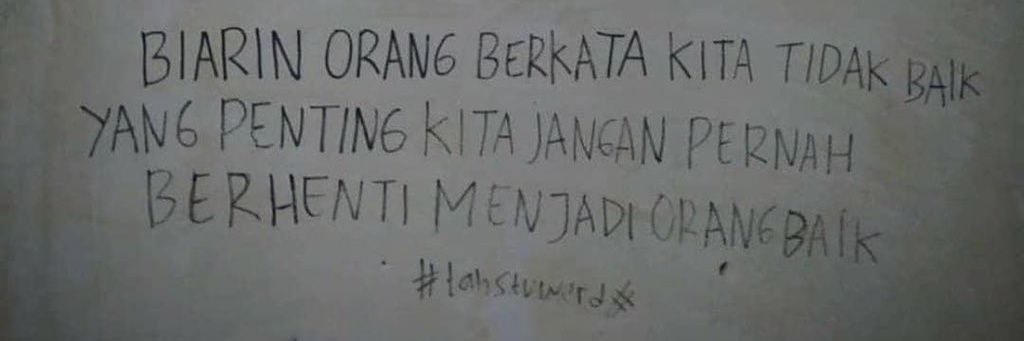 BIARIN ORANG BERKATA KITA TIDAK BAIK
YANG PENTING KITA JANGAN PERNAH
BERHENTI MENJADI ORANG BAIK